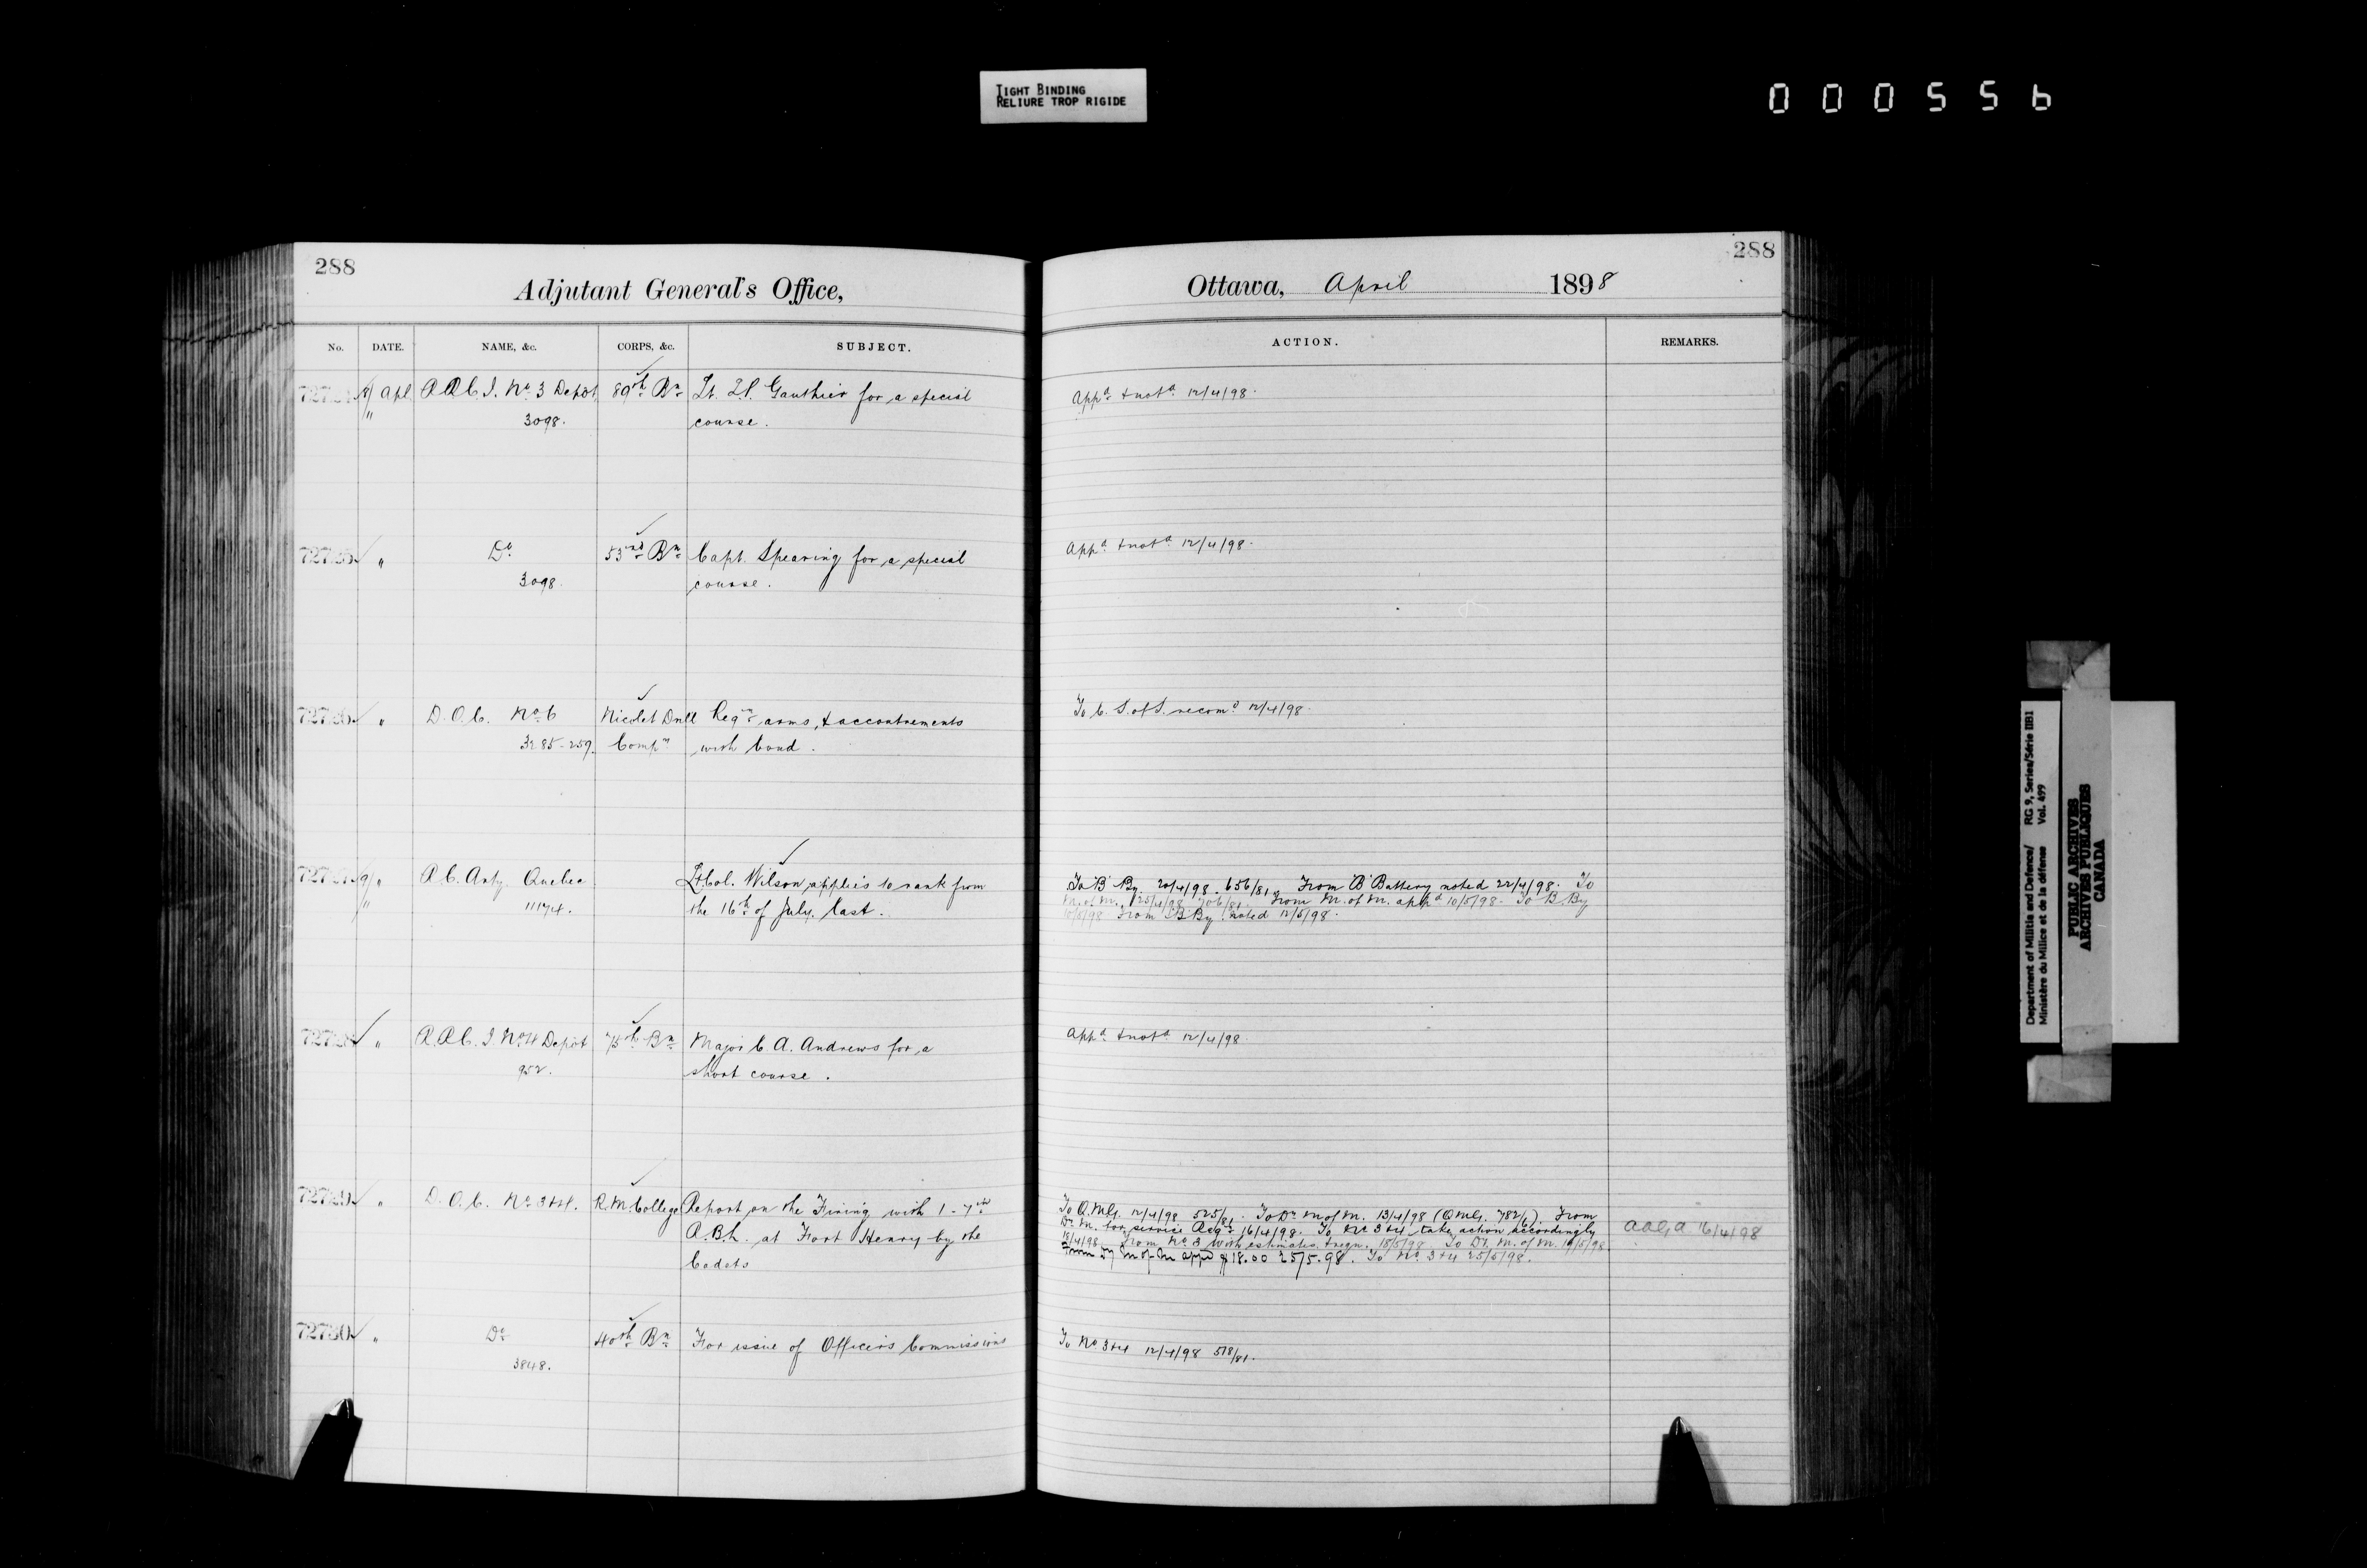 TIGHT BINDING
RELIURE TROP RIGIDE
000556
288
Adjutant General's Office,
No. DATE. NAME, &c. CORPS, &c. SUBJECT.
8/ Apl. R.R.C.I. No. 3 Depôt 89th Bn Lt. Gauthier for a special
" 3098. course.
72725 " Do 53rd Bn Capt. Spearing for a special
3098. course.
72726 " D.O.C. No 6 Nicolet Drill Reqn arms, & accoutrements
3285-259. Compy with bond.
72727 9/" R.C. Arty. Quebec Lt. Col. Wilson applies to rank from
" 11174. the 16th of July, last.
72728 " R.R.C.I. No 4 Depôt 75th Bn Major C. A. Andrews for a
952. short course.
72729 " D.O.C. No 3+4. R.M. College Report on the Firing with 1-7
at Fort Henry by the
Cadets
72730 " Do 40th Bn For issue of Officers Commissions
3848.
288
Ottawa, April 1898
ACTION. REMARKS.
Appd & notd 12/4/98.
Appd & notd 12/4/98.
To C. S. of S. recomd 12/4/98.
To "B" By. 20/4/98. 656/81. From "B" Battery noted 22/4/98. To
M. of M. 25/4/98 706/81. From M. of M. appd 10/5/98. To B By
10/5/98 From "B" By noted 12/5/98.
Appd & notd 12/4/98.
To Q.M.G. 12/4/98 525/81. To Dr M of M. 13/4/98 (QMG. 782/6) From
Dr M. for service Reqd 16/4/98. To No 3+4 take action accordingly
18/4/98 From No 3 with estimates & reqn. 18/5/98 To Dr. M. of M. 19/5/98
From Dy M of M appd $18.00 25/5.98. To No. 3+4 25/5/98.
AAG,a 16/4/98
To No 3+4 12/4/98 518/81.
Department of Militia and Defence/ RG 9, Series/Série IIB1
Ministère du Milice et de la défense Vol. 499
PUBLIC ARCHIVES
ARCHIVES PUBLIQUES
CANADA